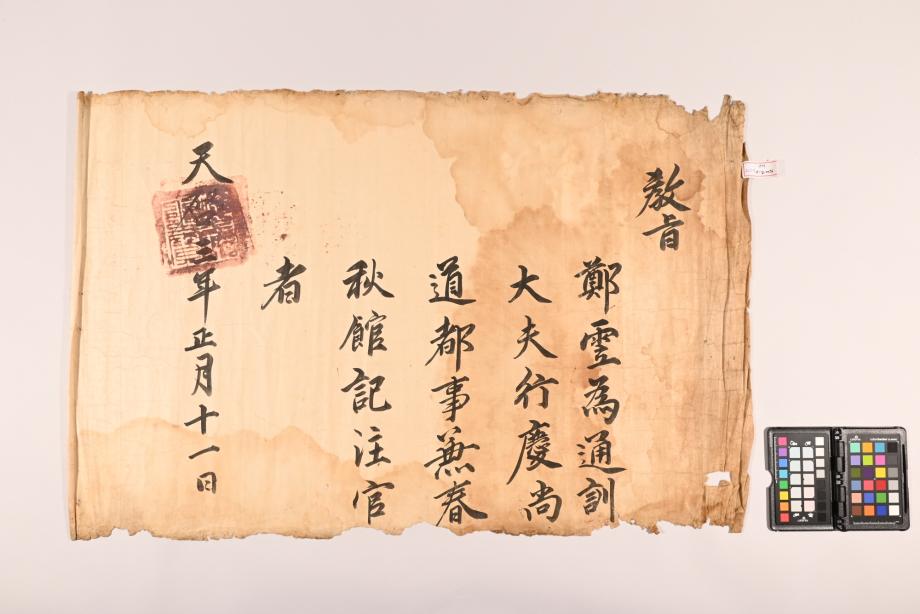 教旨
鄭雲為通訓
大夫行慶尚
道都事兼春
秋館記注官
者
天啓三年正月十一日